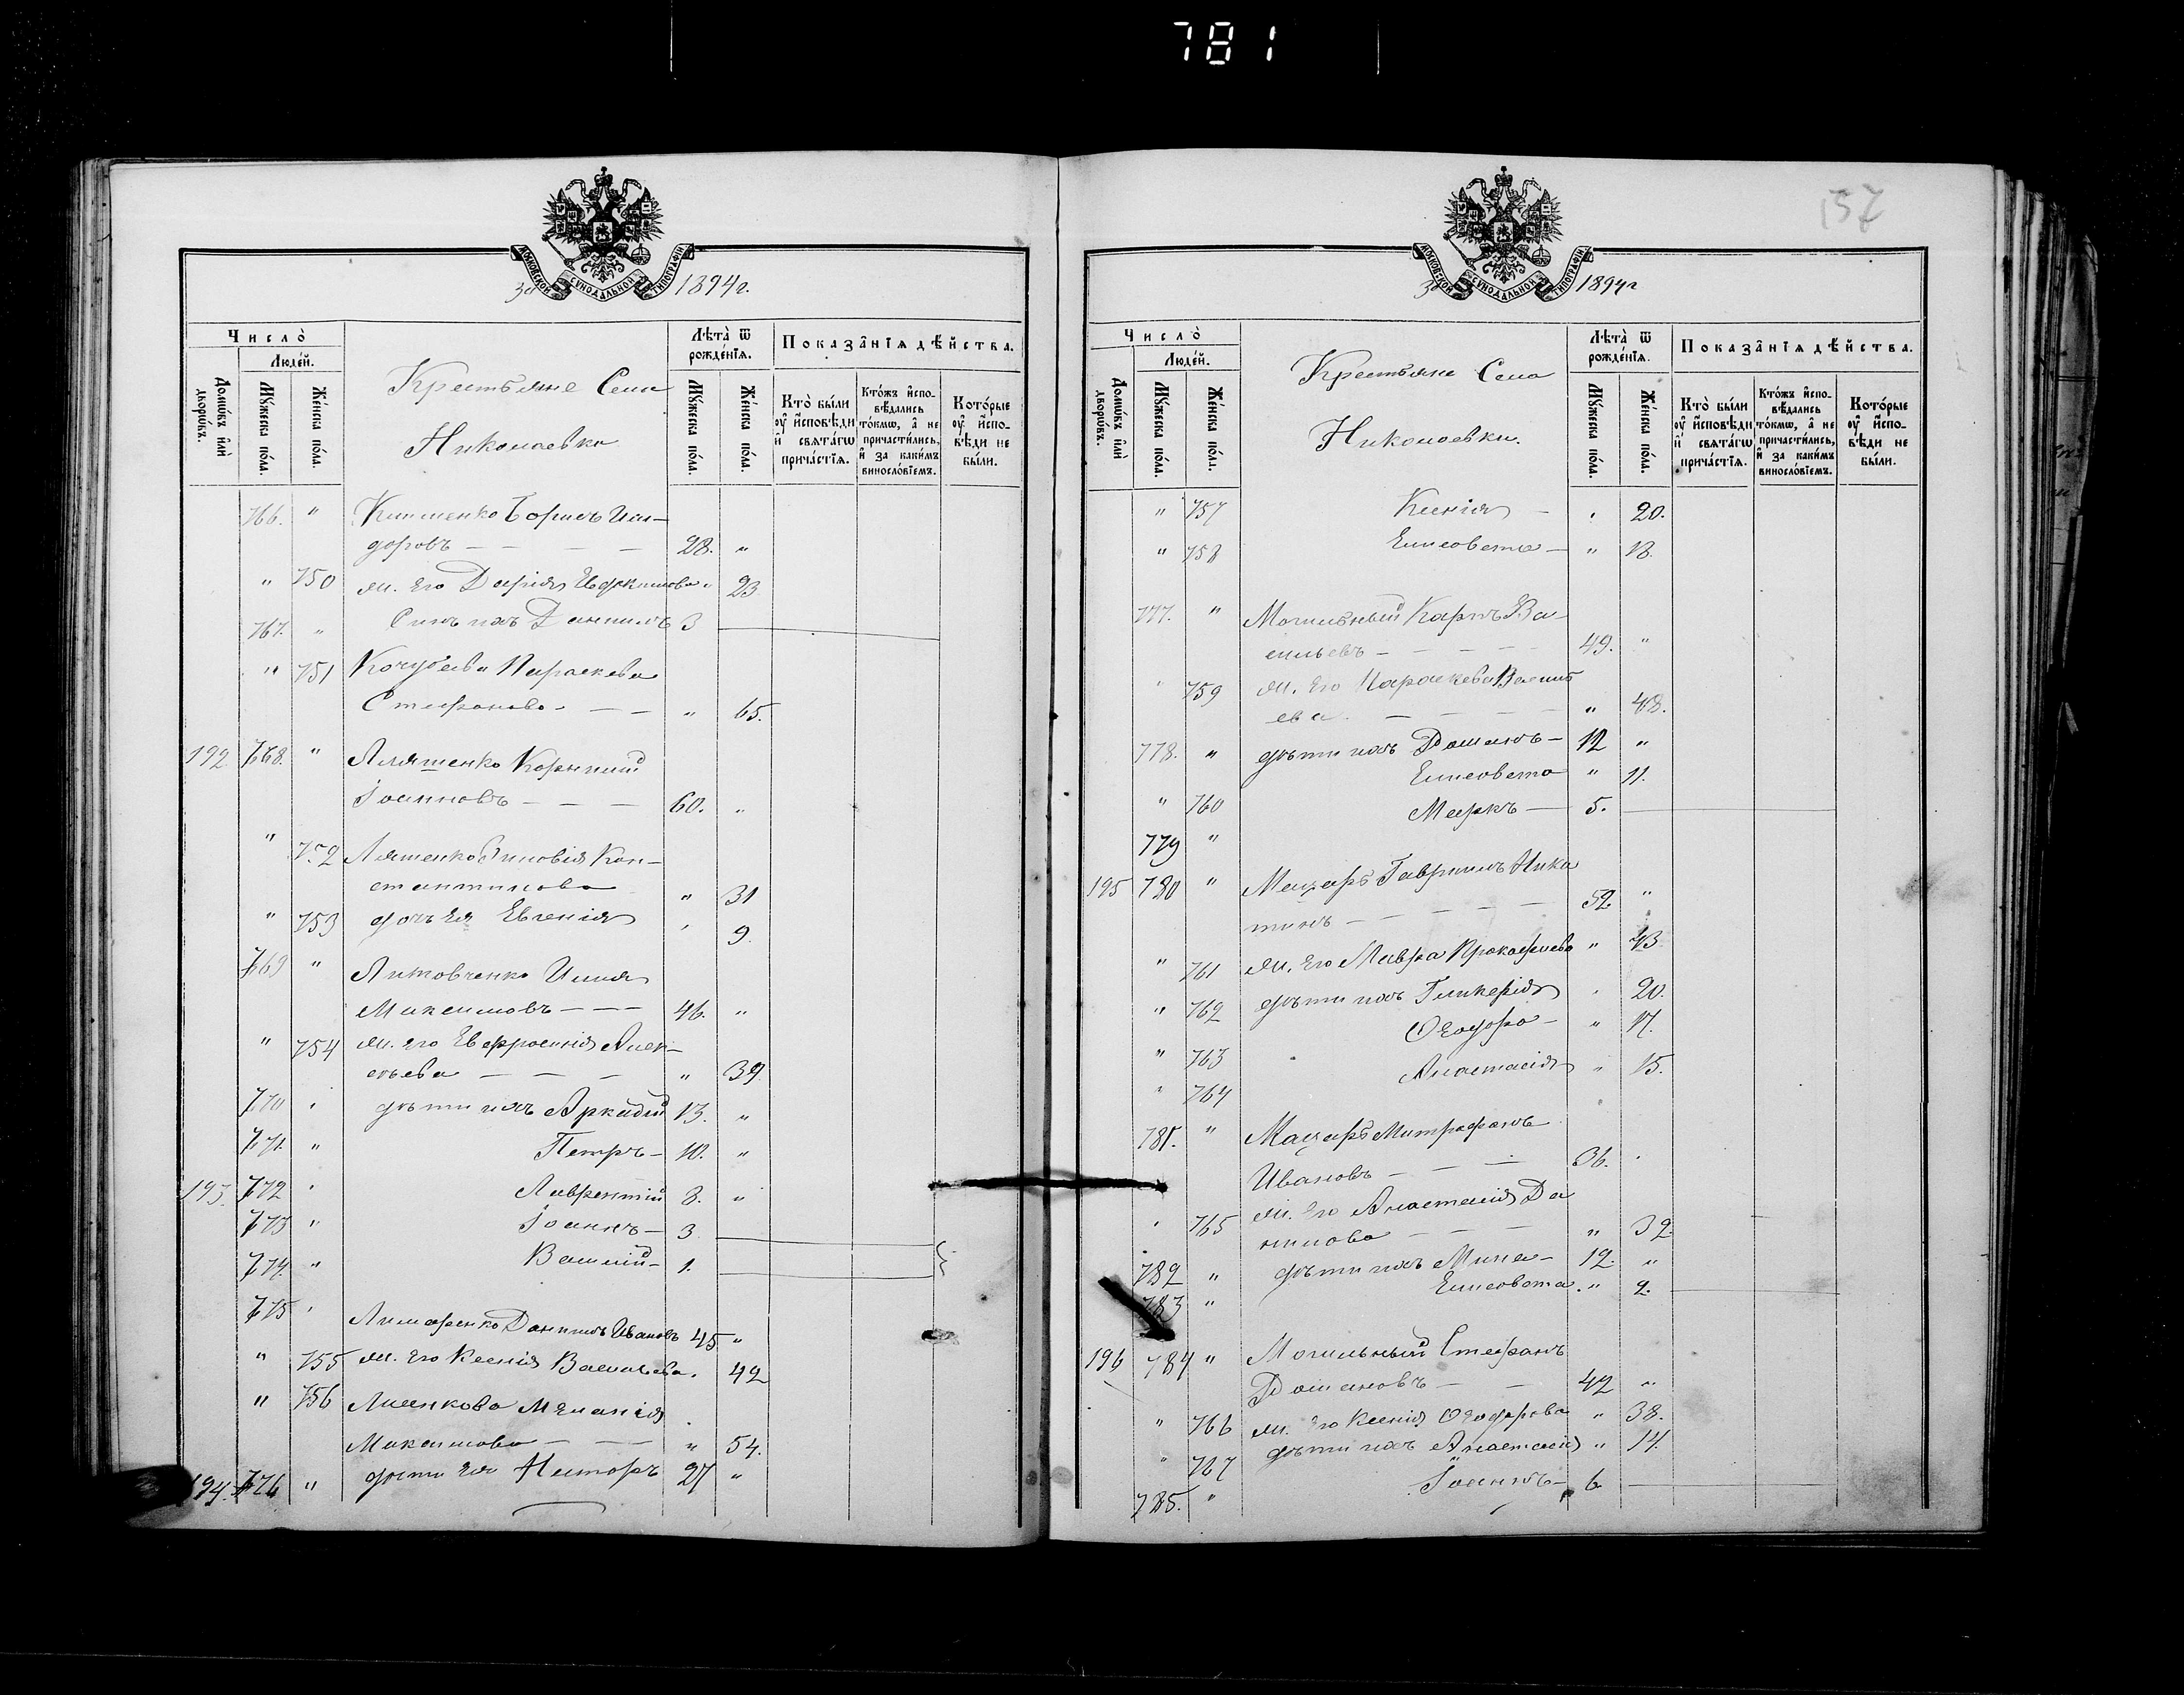 781
МОСКОВСКОЙ СѴНОДАЛЬНОЙ ТИПОГРАФІИ
За 1894 г.
Число̀
Людей.
Домѡвъ и҆лѝ дворѡвъ.
Мꙋжеска по́ла.
Же́нска по́ла.
Крестьяне Села
Николаевки
Лѣта̀ ѿ рожде́нїѧ.
Мꙋжеска по́ла.
Же́нска по́ла.
Показа̂нїѧ дѣ́йства.
Кто̀ бы́ли ᲂу҆ и҆сповѣди и҆ свята́гѡ прича́стїѧ.
Кто́жъ и҆спо-вѣдались то́кмѡ, а҆ не причасти́лись, и҆ за каки́мъ винословїемъ.
Кото́рые ᲂу҆ и҆спо-вѣди не бы́ли.
766. " Клименко Борисъ Иси-
доровъ — — — — 28. "
" 750 ж. его Дарія Евфимова " 23
767. " Сынъ ихъ Даниилъ 3
" 751 Кочубева Параскева
Стефанова — — " 65.
192. 768. " Ляшенко Корнилій
Іоанновъ — — — 60. "
" 752 Ляшенко Зиновія Кон-
стантинова " 31
" 753 дочь ея Евгенія " 9.
769 " Литовченко Илія
Максимовъ — — — 46. "
" 754 ж. его Евфросинія Алек-
сѣева — — — " 39
770 " дѣти ихъ Аркадій 13. "
771. " Петръ — 10. "
193. 772 " Лаврентій 8. "
773 " Іоаннъ — 3
774. " Василій — 1.
775 " Лимаренко Даніилъ Ивановъ 45 "
" 755 ж. его Ксенія Васильева. 42
" 756 Лисенкова Меланія
Максимова — — " 54.
194. 776 " дѣти ея Несторъ 27 "
157
МОСКОВСКОЙ СѴНОДАЛЬНОЙ ТИПОГРАФІИ
За 1894 г
Число̀
Людей.
Домѡвъ и҆лѝ дворѡвъ.
Мꙋжеска по́ла.
Же́нска по́ла.
Крестьяне Села
Николаевки.
Лѣта̀ ѿ рожде́нїѧ.
Мꙋжеска по́ла.
Же́нска по́ла.
Показа̂нїѧ дѣ́йства.
Кто̀ бы́ли ᲂу҆ и҆сповѣди и҆ свята́гѡ прича́стїѧ.
Кто́жъ и҆спо-вѣдались то́кмѡ, а҆ не причасти́лись, и҆ за каки́мъ винословїемъ.
Кото́рые ᲂу҆ и҆спо-вѣди не бы́ли.
" 757 Ксенія — " 20.
" 758 Елисовета — " 18.
777. " Могильный Карпъ Ва-
сильевъ — — — — 49. "
" 759 ж. его Параскева Василь
ева. — — — — " 48.
778. " дѣти ихъ Романъ — 12 "
Елисовета " 11.
" 760 Маркъ — 5.
779 "
195 780 " Мацаръ Гавриилъ Ники
тинъ — — — — — 52. "
" 761 ж. его Мавра Прокофиева " 43
" 762 дѣти ихъ Гликерія " 20.
Ѳеодора — " 17.
" 763 Анастасія " 15.
" 764
781. " Мацаръ Митрофанъ
Ивановъ — — — 36. "
" 765 ж. его Анастасія Да
нилова — — " 32.
782 " дѣти ихъ Мина — 12. "
Елисовета. " 2.
783 "
196 784 " Могильный Стефанъ
Романовъ — — 42 "
" 766 ж. его Ксенія Ѳеодорова " 38.
дѣти ихъ Анастасія " 14.
" 767
Іоаннъ — 6.
785. "